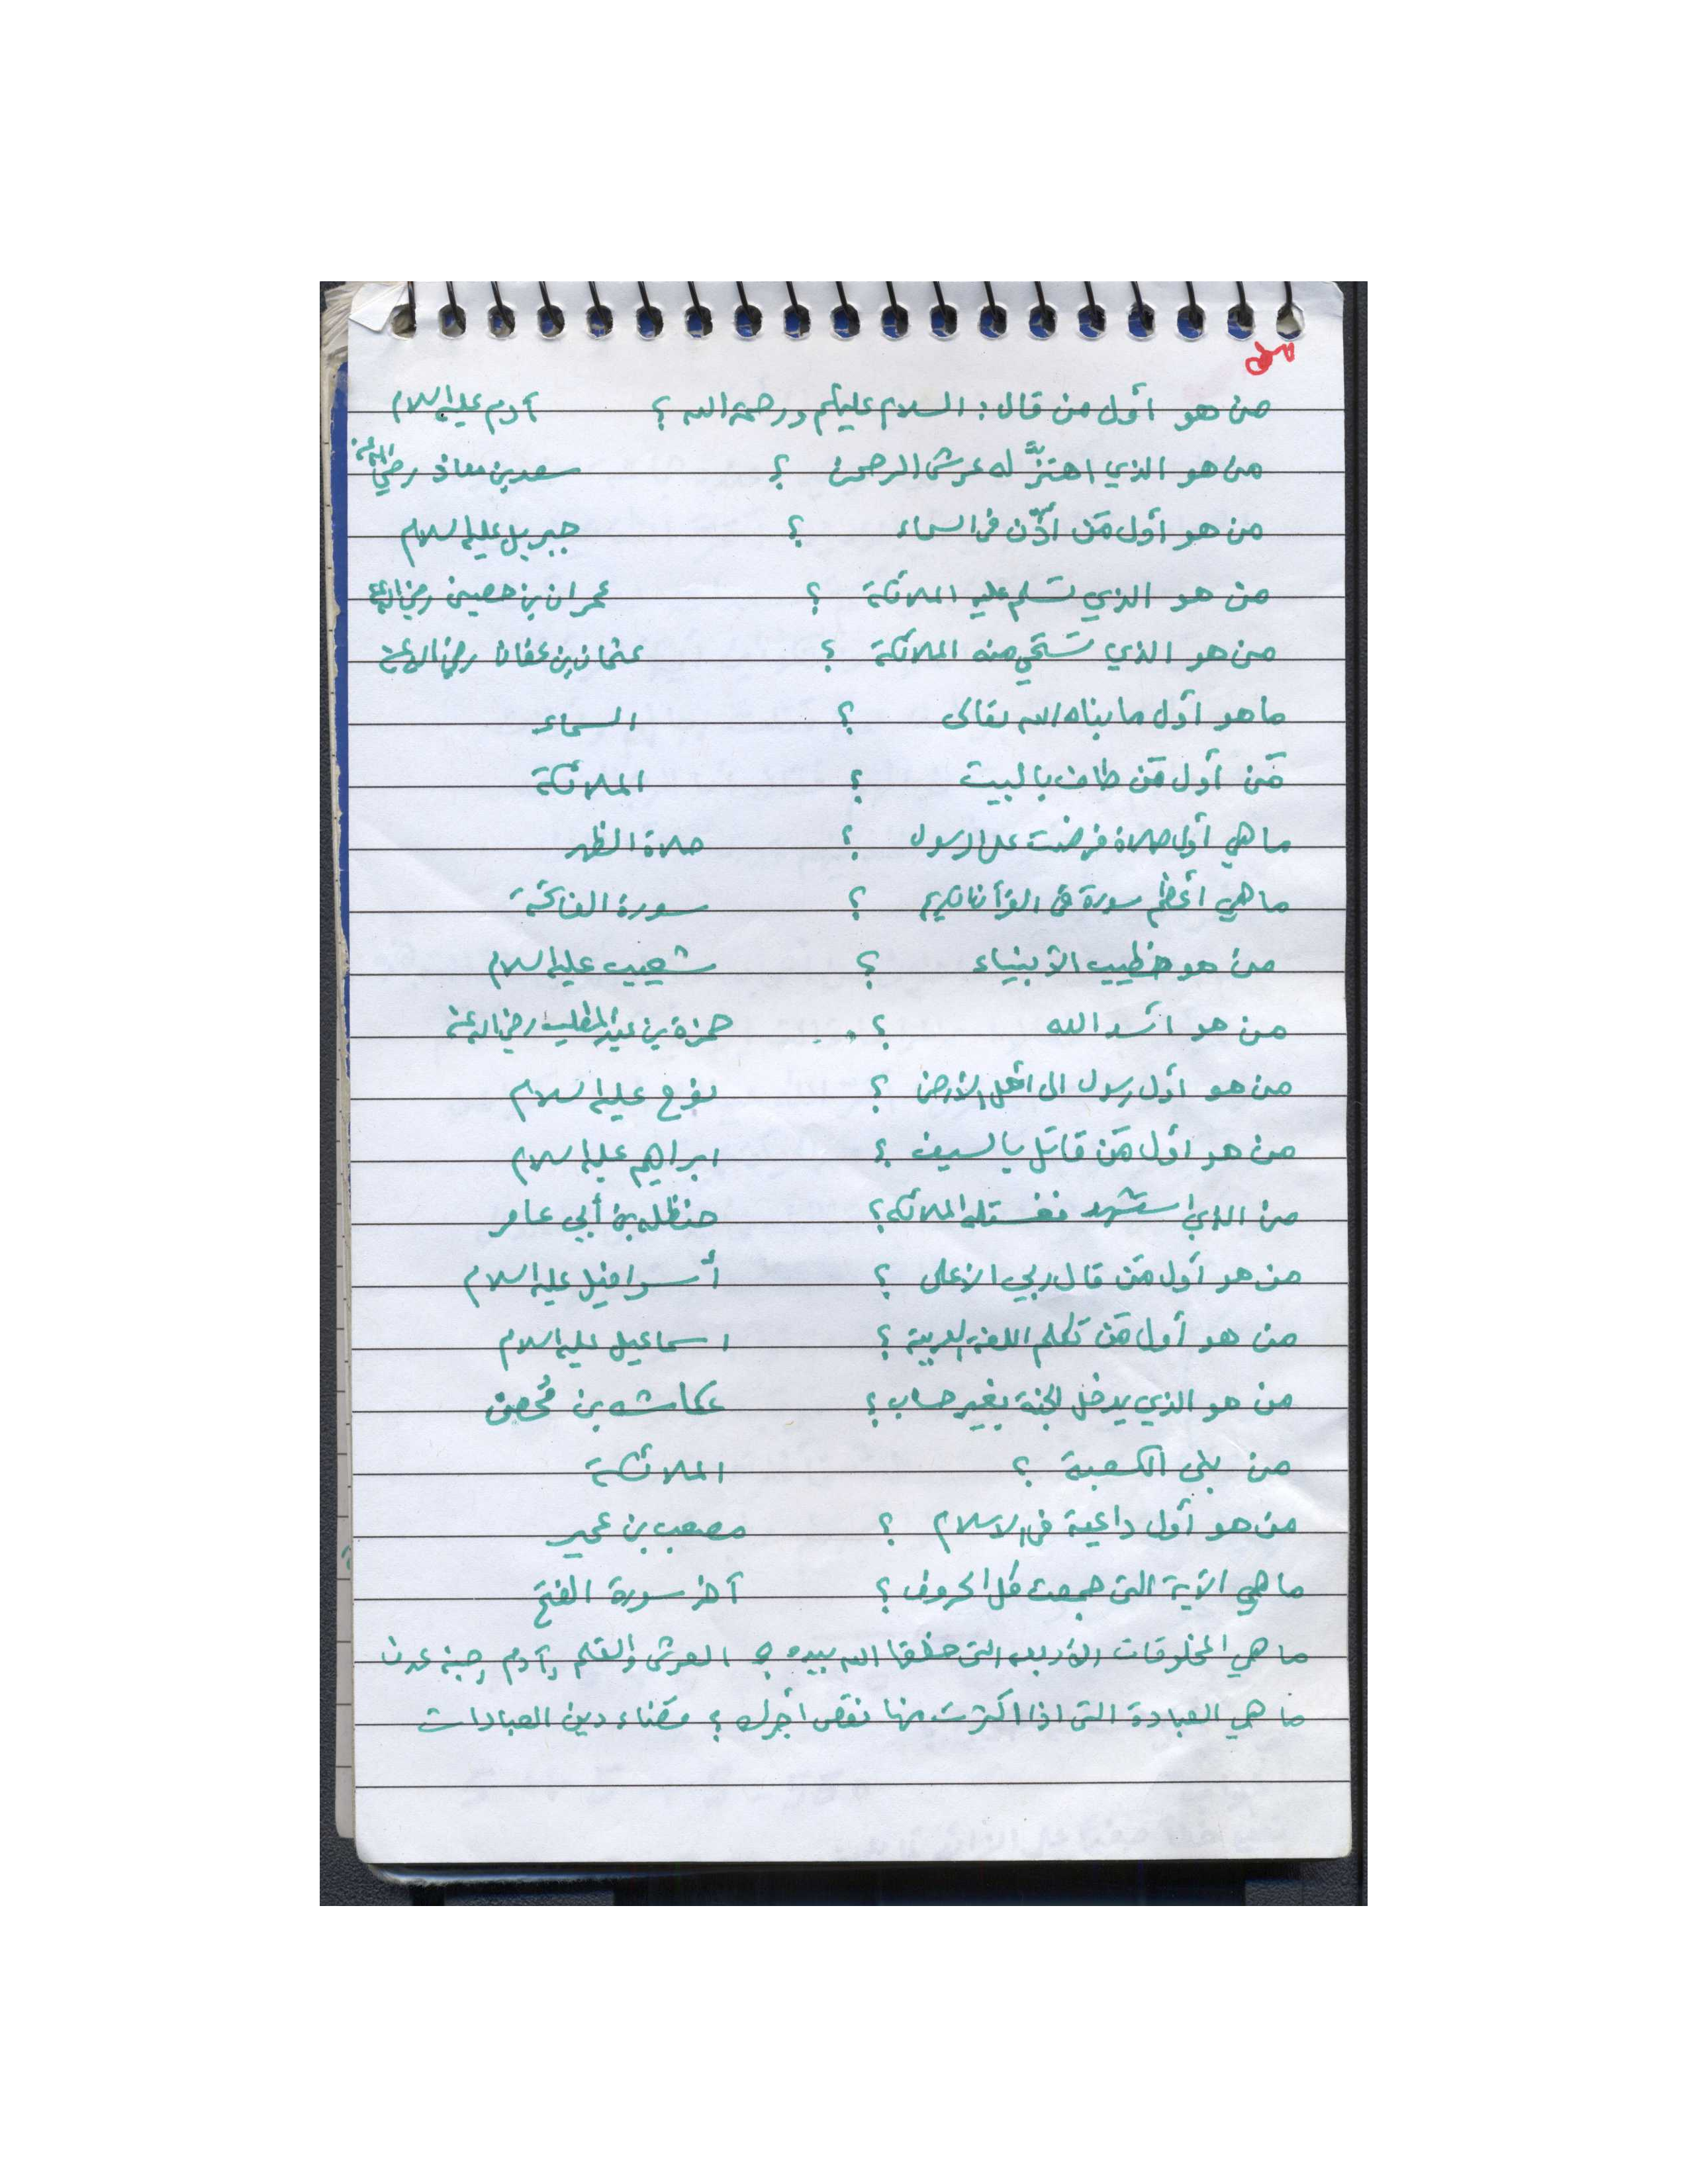 من هو أول من قال : السلام عليكم ورحمة الله ؟ آدم عليه السلام
من هو الذي اهتزَّ له عرش الرحمن ؟ سعد بن معاذ رضي الله عنه
من هو أول مَن أذّن في السماء ؟ جبريل عليه السلام
من هو الذي تسلم عليه الملائكة ؟ عمران بن حصين رضي الله عنه
من هو الذي تستحي منه الملائكة ؟ عثمان بن عفان رضي الله عنه
ما هو أول ما بناه الله تعالى ؟ السماء
مَن أول مَن طاف بالبيت ؟ الملائكة
ما هي أول صلاة فرضت على الرسول ؟ صلاة الظهر
ما هي أعظم سورة في القرآن الكريم ؟ سورة الفاتحة
من هو خطيب الأنبياء ؟ شعيب عليه السلام
من هو أسد الله ؟ حمزة بن عبد المطلب رضي الله عنه
من هو أول رسول الى أهل الأرض ؟ نوح عليه السلام
من هو أول مَن قاتل بالسيف ؟ ابراهيم عليه السلام
من الذي استشهد فغسلته الملائكة ؟ حنظلة بن أبي عامر
من هو أول مَن قال ربي الأعلى ؟ أسرافيل عليه السلام
من هو أول مَن تكلم اللغة العربية ؟ اسماعيل عليه السلام
من هو الذي يدخل الجنة بغير حساب ؟ عكاشه بن مُحصن
من بنى الكعبة ؟ الملائكة
من هو أول داعية في الاسلام ؟ مصعب بن عمير
ما هي الآية التي جمعت كل الحروف ؟ آخر سورة الفتح
ما هي المخلوقات الأربعه التي خلقها الله بيده ؟ العرش والقلم وآدم وجنة عدن
ما هي العبادة التي اذا اكثرت منها نقص أجرك ؟ قضاء دين العبادات